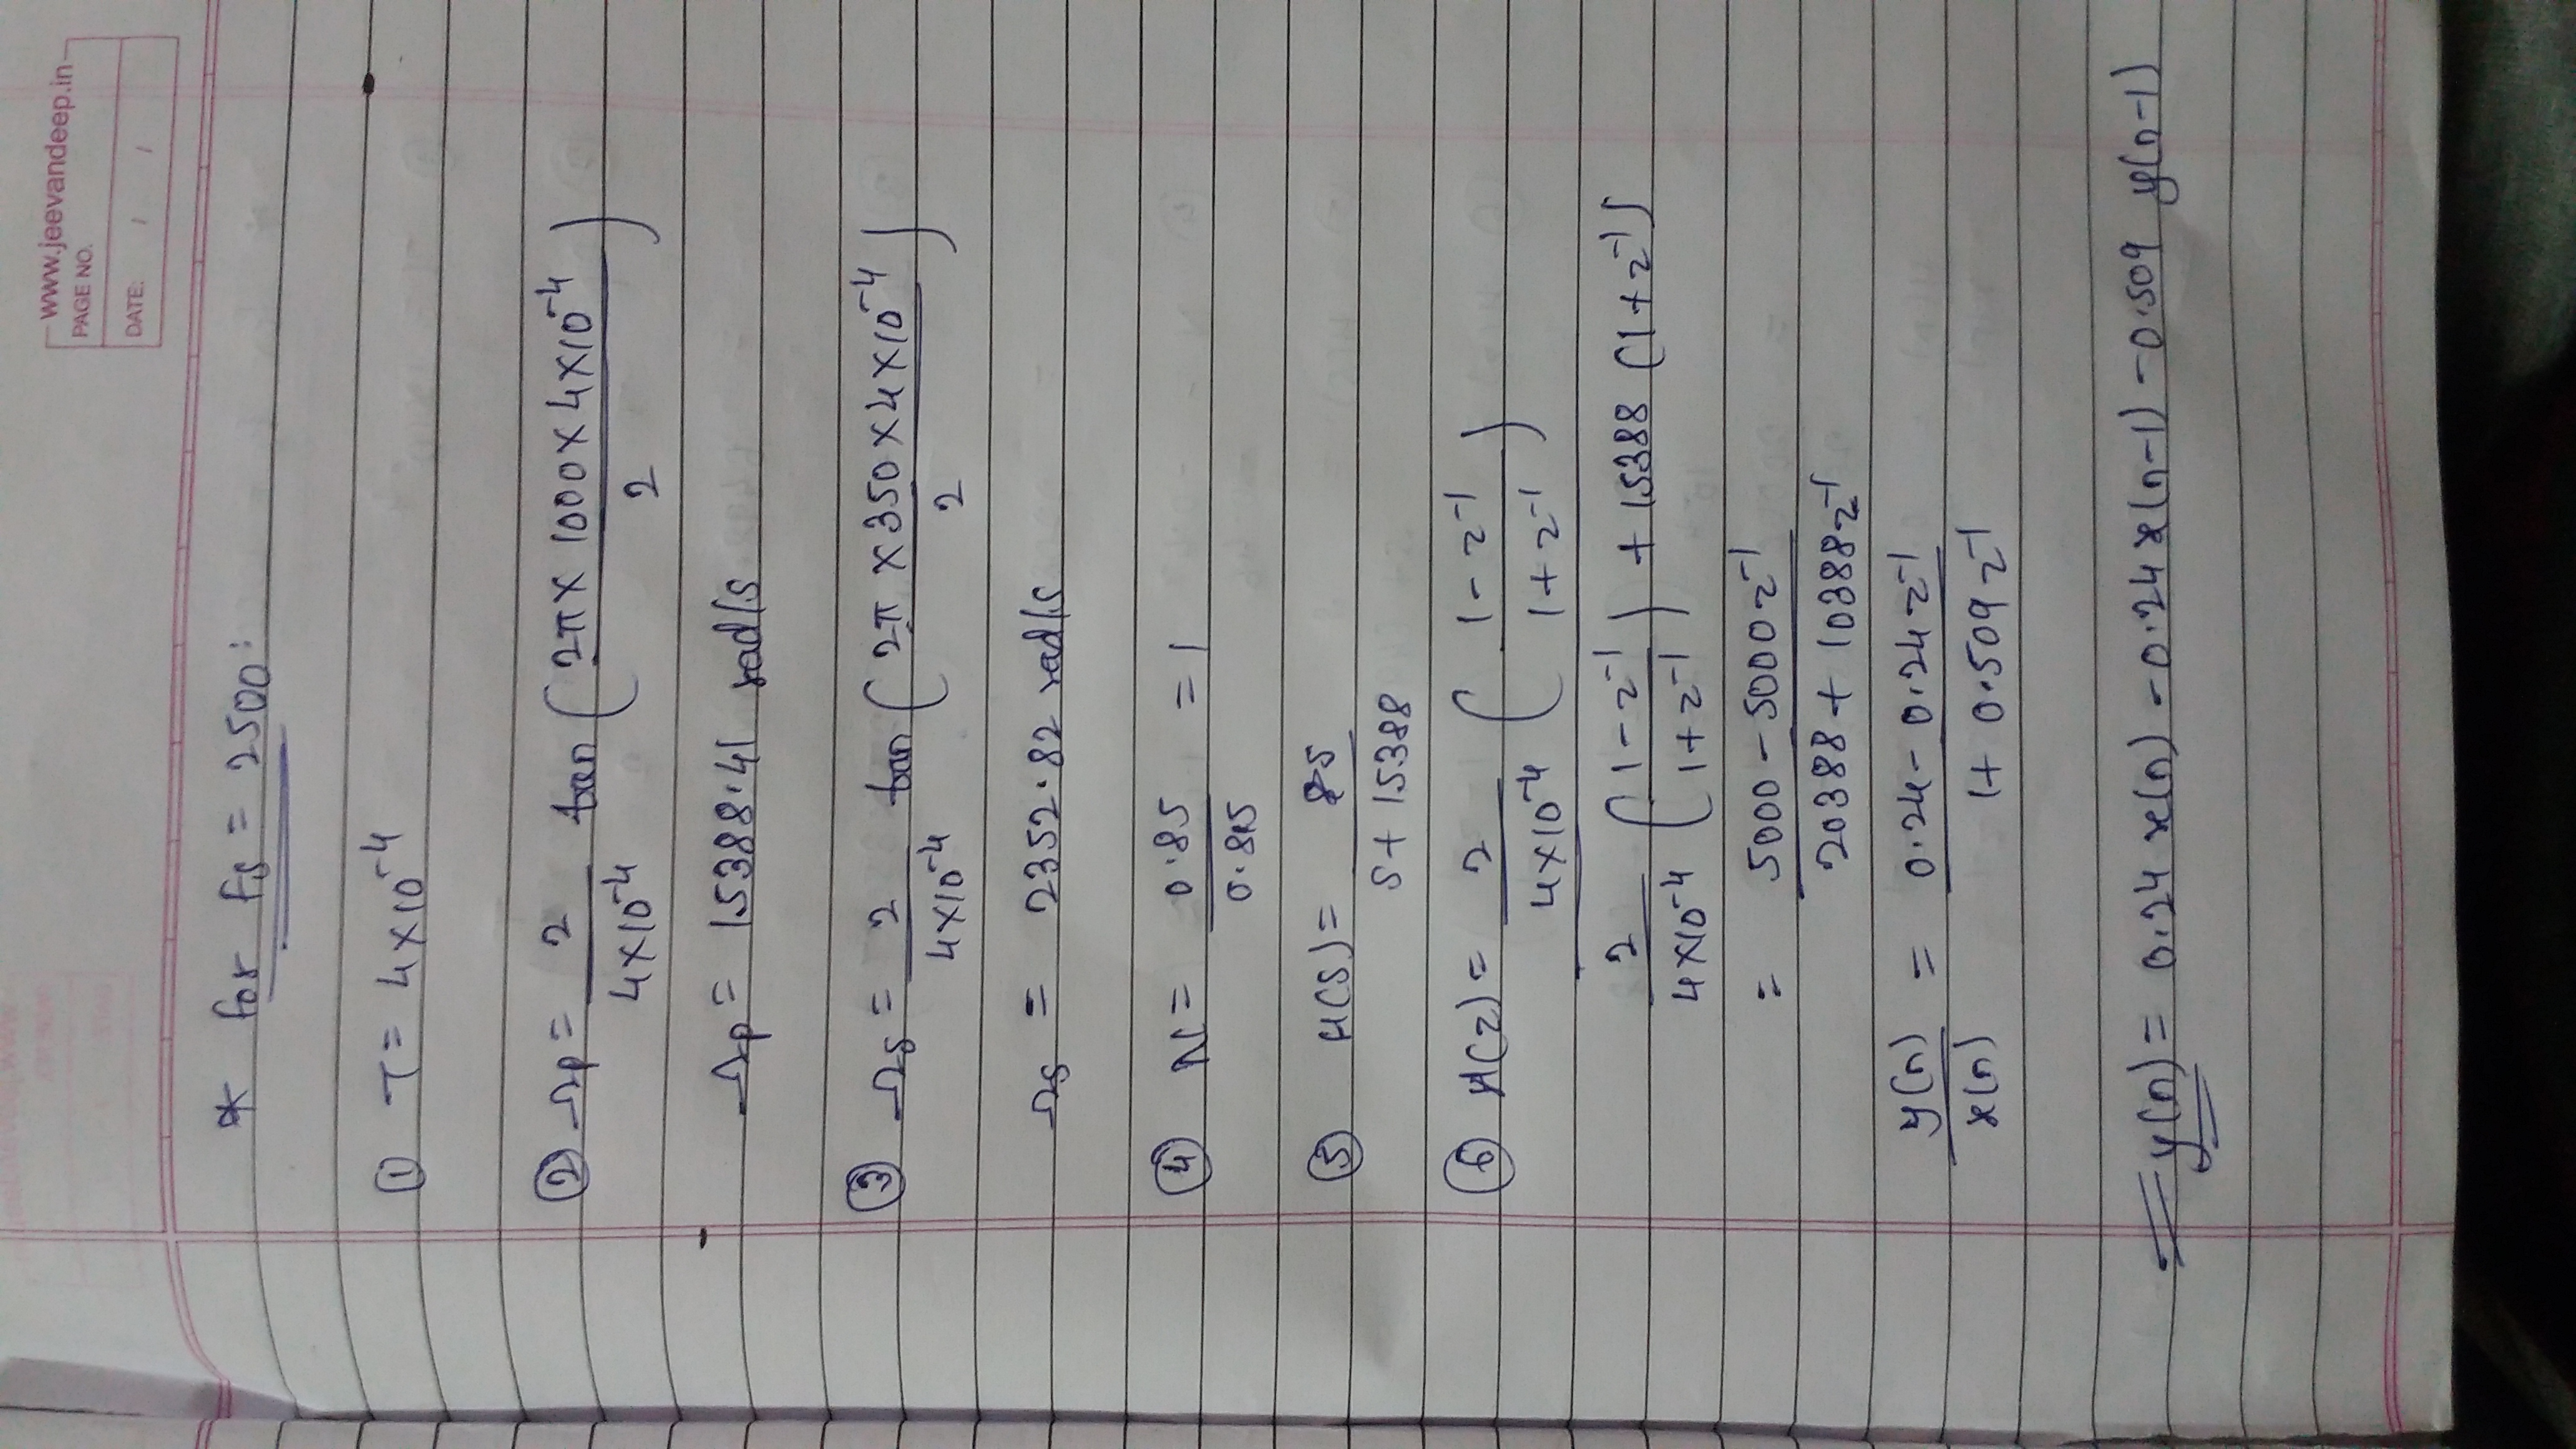 www.jeevandeep.in
PAGE NO.
DATE: / /
* for fs = 2500:
① T = 4×10⁻⁴
② Ωp = 2/(4×10⁻⁴) tan (2π × 1000 × 4×10⁻⁴ / 2)
Ωp = 15388.41 rad/s
③ Ωs = 2/(4×10⁻⁴) tan (2π × 350 × 4×10⁻⁴ / 2)
Ωs = 2352.82 rad/s
④ N = 0.85/0.815 = 1
⑤ H(s) = s/(s + 15388)
⑥ H(z) = 2/(4×10⁻⁴) (1 - z⁻¹ / 1 + z⁻¹)
2/(4×10⁻⁴) (1 - z⁻¹ / 1 + z⁻¹) + 15388 (1 + z⁻¹)
= 5000 - 5000 z⁻¹ / 20388 + 10388 z⁻¹
y(n)/x(n) = 0.24 - 0.24 z⁻¹ / 1 + 0.509 z⁻¹
y(n) = 0.24 x(n) - 0.24 x(n-1) - 0.509 y(n-1)